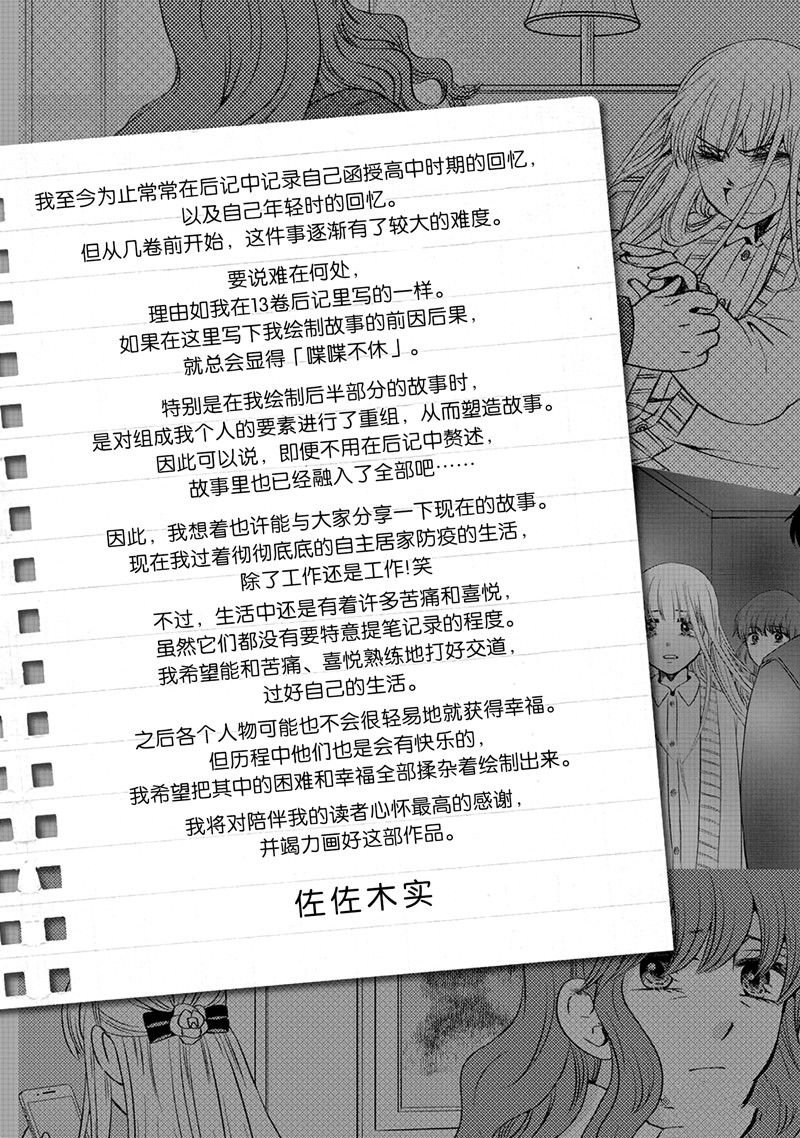 我至今为止常常在后记中记录自己函授高中时期的回忆，
以及自己年轻时的回忆。
但从几卷前开始，这件事逐渐有了较大的难度。
要说难在何处，
理由如我在13卷后记里写的一样。
如果在这里写下我绘制故事的前因后果，
就总会显得「喋喋不休」。
特别是在我绘制后半部分的故事时，
是对组成我个人的要素进行了重组，从而塑造故事。
因此可以说，即便不用在后记中赘述，
故事里也已经融入了全部吧……
因此，我想着也许能与大家分享一下现在的故事。
现在我过着彻彻底底的自主居家防疫的生活，
除了工作还是工作！笑
不过，生活中还是有着许多苦痛和喜悦，
虽然它们都没有要特意提笔记录的程度。
我希望能和苦痛、喜悦熟练地打好交道，
过好自己的生活。
之后各个人物可能也不会很轻易地就获得幸福。
但历程中他们也是会有快乐的，
我希望把其中的困难和幸福全部揉杂着绘制出来。
我将对陪伴我的读者心怀最高的感谢，
并竭力画好这部作品。
佐佐木实